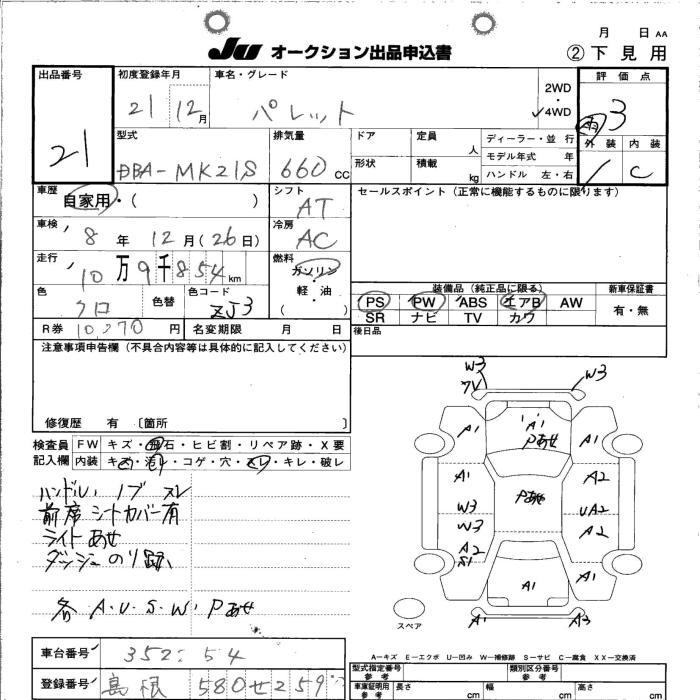 月 日 AA
JU オークション出品申込書
② 下見用
出品番号
21
初度登録年月
21 12月
車名・グレード
パレット
2WD
・
✓4WD
評価点
雨 3
外装 内装
1 C
型式
DBA-MK21S
排気量
660 CC
ドア
形状
定員 人
積載 kg
ディーラー・並行
モデル年式 年
ハンドル 左・右
車歴
自家用・( )
シフト
AT
セールスポイント (正常に機能するものに限ります)
車検
8年 12月(26日)
冷房
AC
走行
10万9千854km
燃料
ガソリン・
軽油
( )
色
クロ
色替
色コード
ZJ3
装備品 (純正品に限る)
新車保証書
PS PW ABS エアB AW
SR ナビ TV カワ
有・無
R券 10270円
名変期限 月 日
後日品
注意事項申告欄 (不具合内容等は具体的に記入してください)
修復歴 有 〔箇所 〕
検査員
記入欄
FW キズ・飛石・ヒビ割・リペア跡・X要
内装 キズ・汚れ・コゲ・穴・スレ・キレ・破レ
ハンドル、ノブ スレ
前席シートカバー有
ライトあせ
ダッシュのり跡
各 A・U・S・W・Pあせ
W3
W3
A1
A1
Pあせ
A1
A1
A2
Pあせ
W3
UA2
W3
A2
A2
S1
A1
A1
A1
A3
スペア
A-キズ E-エクボ U-凹み W-補修跡 S-サビ C-腐食 XX-交換済
車台番号
352 54
登録番号
島根 580せ259
型式指定番号
参考
類別区分番号
参考
車庫証明用
参考
長さ cm
幅 cm
高さ cm